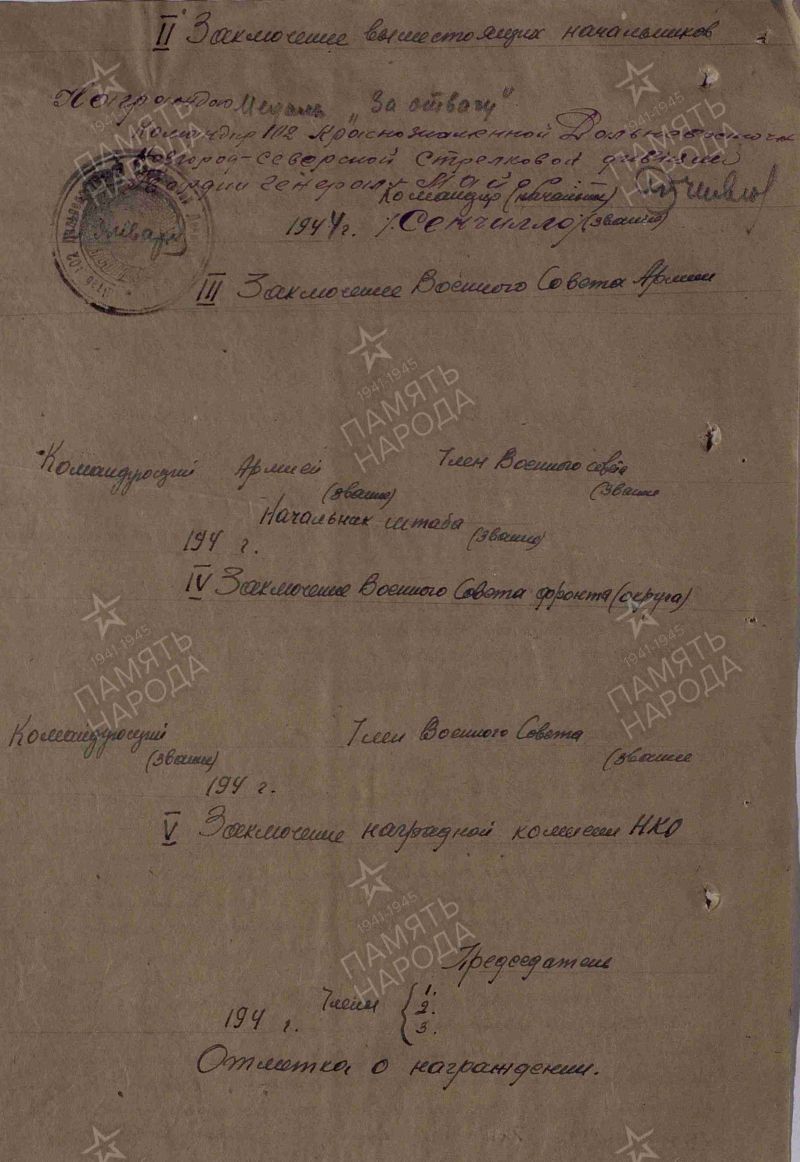 II Заключение вышестоящих начальников
Награждаю Медаль "За отвагу"
Командир 102 Краснознаменной Дальневосточн
Новгород-Северской Стрелковой дивизии
Гвардии Генерал-Майор
Командир (начальник)
Января 1944 г. /Сенчилло/ (звание)
III Заключение Военного Совета Армии
1941-1945
ПАМЯТЬ
НАРОДА
Командующий Армией Член Военного совета
(звание) (звание
Начальник штаба
194 г. (звание)
IV Заключение Военного Совета фронта (округа)
1941-1945
ПАМЯТЬ
НАРОДА
1941-1945
ПАМЯТЬ
НАРОДА
Командующий Член Военного Совета
(звание) (звание
194 г.
V Заключение наградной комиссии НКО
1941-1945
ПАМЯТЬ
НАРОДА
Председатель
Члены { 1.
2.
194 г. 3.
Отметка о награждении.